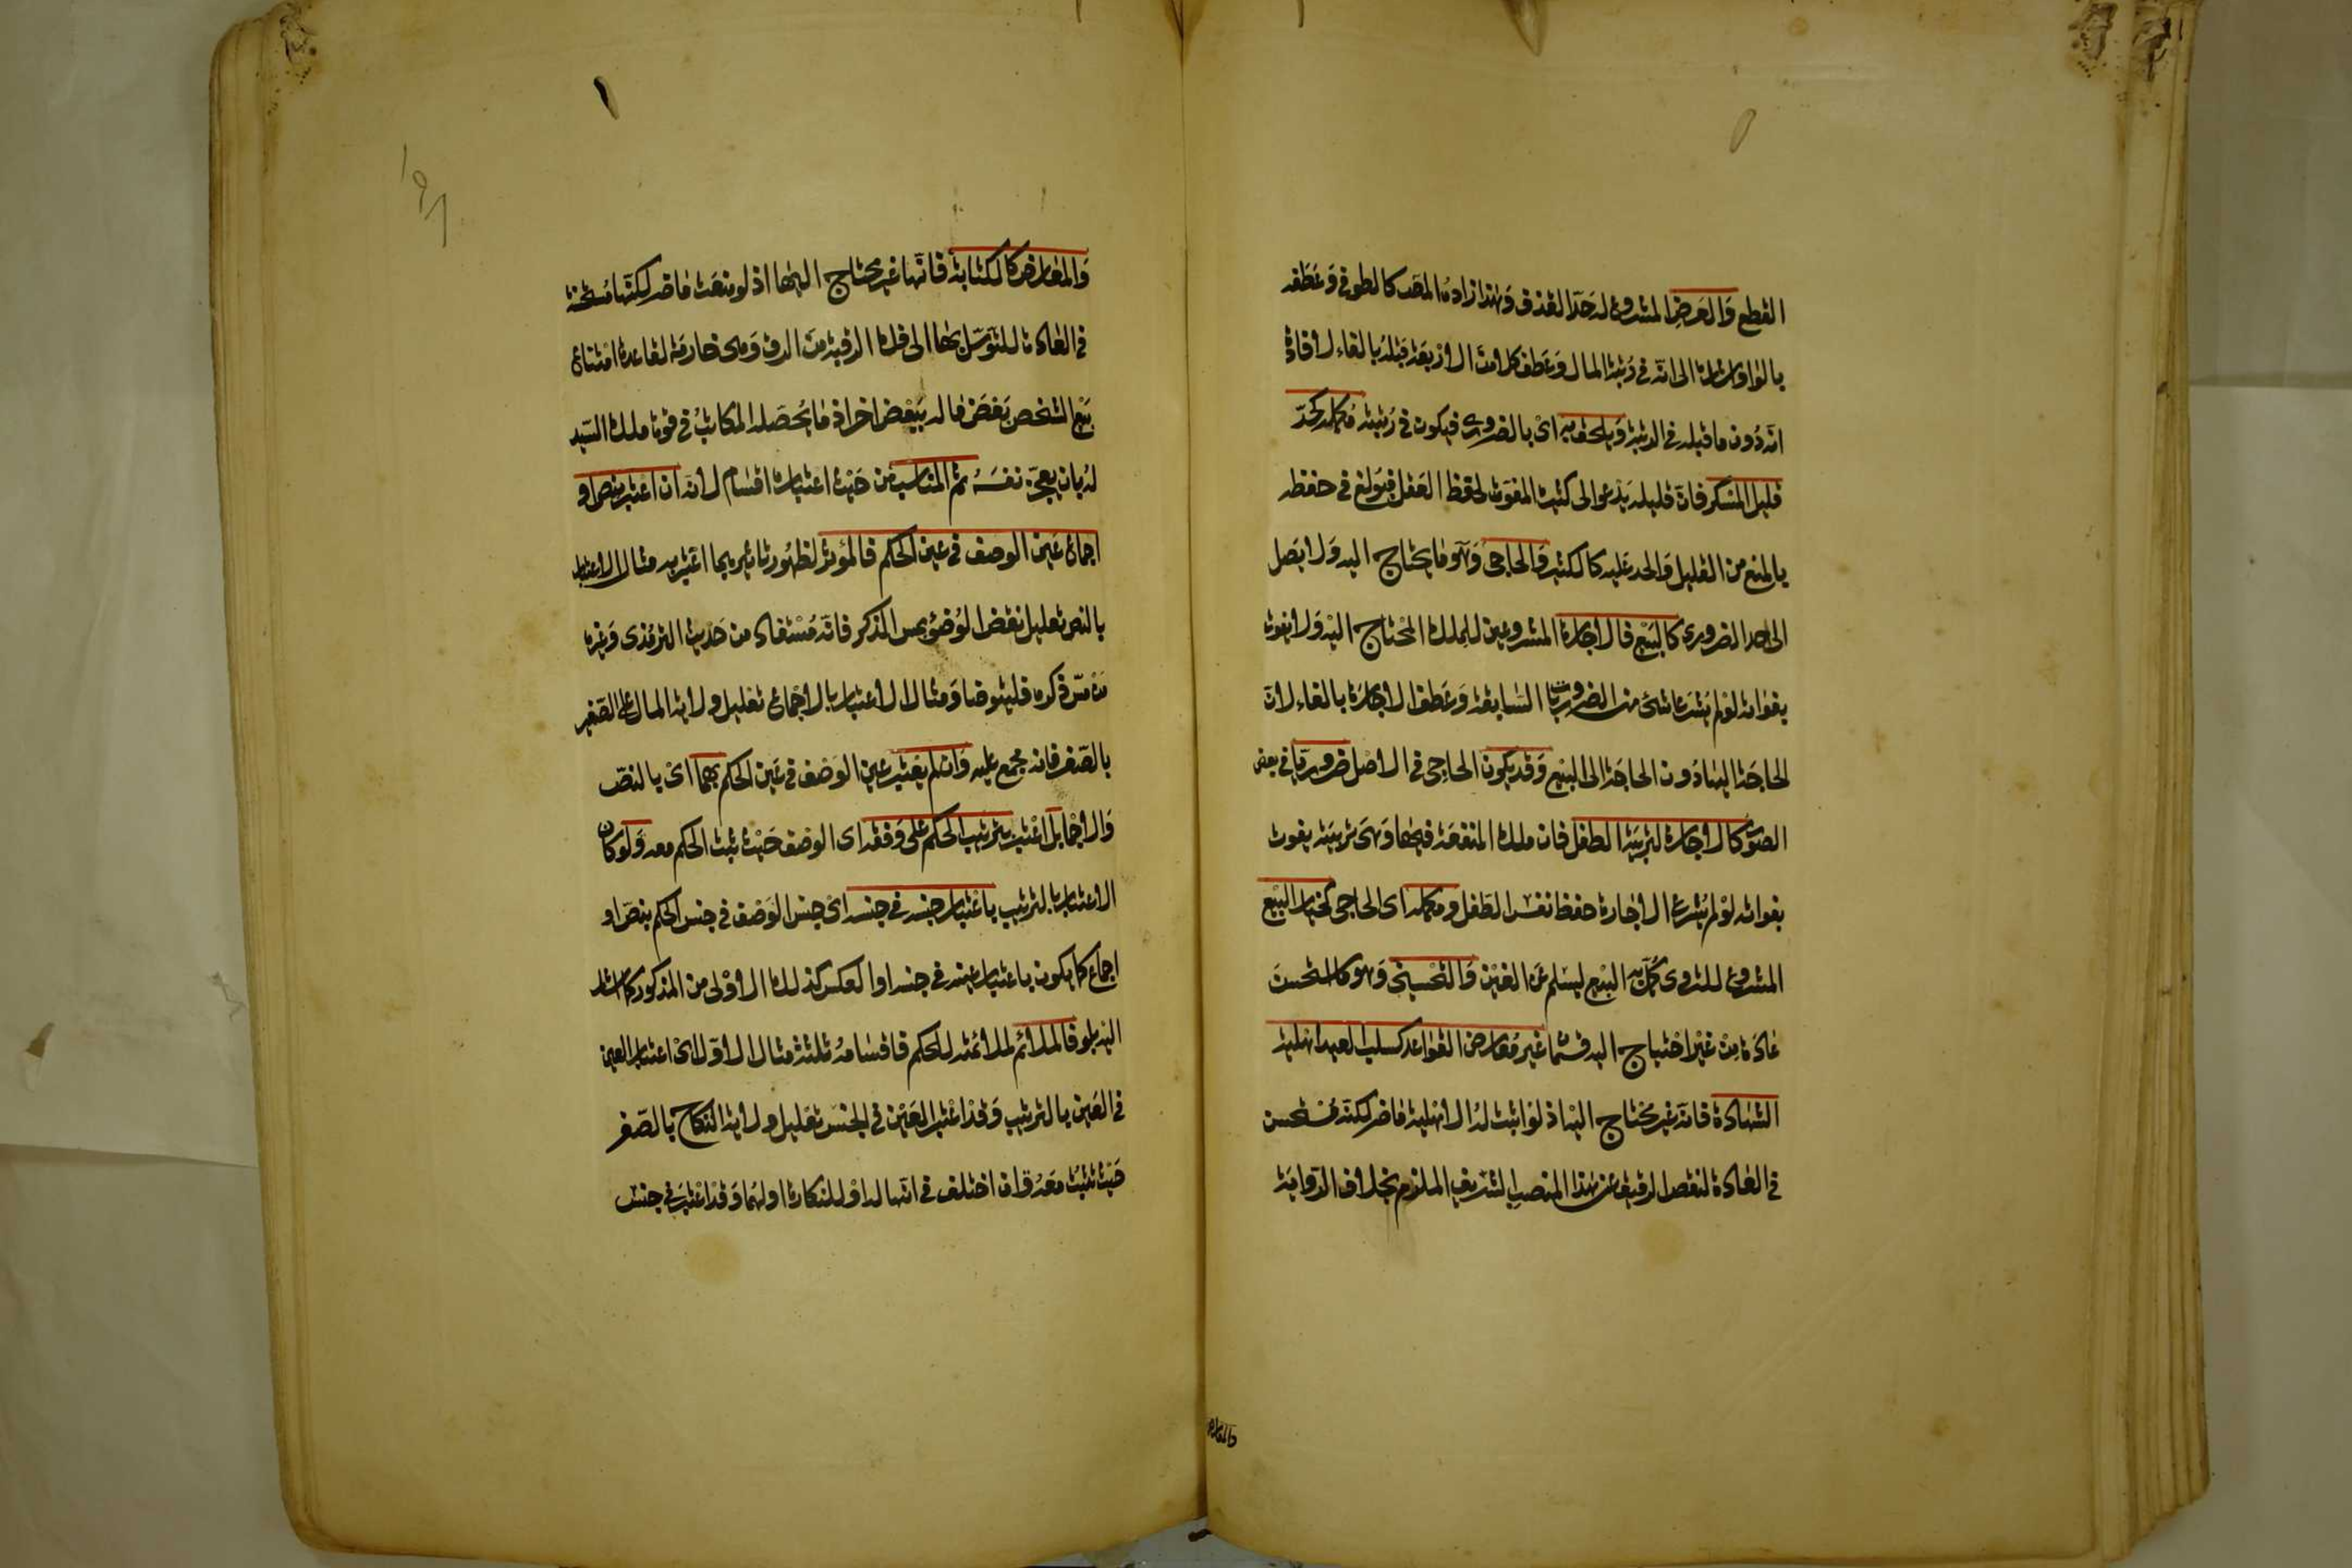 القطع والعرض المشروع له حد القذف وهذا زاده المصنف كالطوفي وعطفه
بالواو اشارة الى انه في رتبة المال وعطف كلا من الاربعة قبله بالفاء لافادة
انه دون ما قبله في الرتبة ويلحق به اي بالضروري فيكون في رتبته مكمله كحد
قليل المسكر فان قليله يدعو الى كثيره المفوت لحفظ العقل فبولغ في حفظه
بالمنع من القليل والحد عليه كالكثير والحاجي وهو ما يحتاج اليه ولا يصل
الى حد الضروري كالبيع فالاجارة المشروعين للملك المحتاج اليه ولا يفوت
بفواته لو لم يشرعا شئ من الضروريات السابقة وعطف الاجارة بالفاء لان
الحاجة اليها دون الحاجة الى البيع وقد يكون الحاجي في الاصل ضروريا في بعض
الصور كالاجارة لتربية الطفل فان ملك المنفعة فيها وهي تربيته يفوت
بفواته لو لم يشرع الاجارة حفظ نفس الطفل ومكمله اي الحاجي كخيار البيع
المشروع للتروي كمل به البيع ليسلم عن الغبن والتحسيني وهو ما استحسن
عادة من غير احتياج اليه قسمان غير معارض القواعد كسلب العبد اهلية
الشهادة فانه غير محتاج اليه اذ لو اثبت له الاهلية ما ضر لكنه مستحسن
في العادة لنقص الرقيق عن هذا المنصب الشريف الملزم بخلاف الرواية
والمعارض
والمعارض كالكتابة فانها غير محتاج اليها اذ لو منعت ما ضر لكنها مستحسنة
في العادة للتوسل بها الى فك الرقبة من الرق وهي خارمة لقاعدة امتناع
بيع الشخص بعض ماله ببعض اخر اذ ما يحصله المكاتب في قوة ملك السيد
له بان يعجز نفسه ثم المناسب من حيث اعتباره اقسام لانه ان اعتبر بنص او
اجماع عين الوصف في عين الحكم فالمؤثر لظهور تاثيره بما اعتبر به مثال الاعتبار
بالنص تعليل نقض الوضوء بمس الذكر فانه مستفاد من حديث الترمذي وغيره
من مس ذكره فليتوضا ومثال الاعتبار بالاجماع تعليل ولاية المال على الصغير
بالصغر فانه مجمع عليه وان لم يعتبر عين الوصف في عين الحكم بهما اي بالنص
والاجماع بل اعتبر بترتيب الحكم على وفقه اي الوصف حيث ثبت الحكم معه ولو كان
الاعتبار بالترتيب باعتبار جنسه في جنسه اي جنس الوصف في جنس الحكم بنص او
اجماع كما يكون باعتبار عينه في جنسه او العكس كذلك الاولى من المذكور كما اشار
اليه بلو فالملائم لملائمته للحكم فاقسامه ثلثة مثال الاول اي اعتبار العين
في العين بالترتيب وقد اعتبر العين في الجنس تعليل ولاية النكاح بالصغر
حيث تثبت معه وان اختلف في انها له او للبكارة او لهما وقد اعتبر في جنس